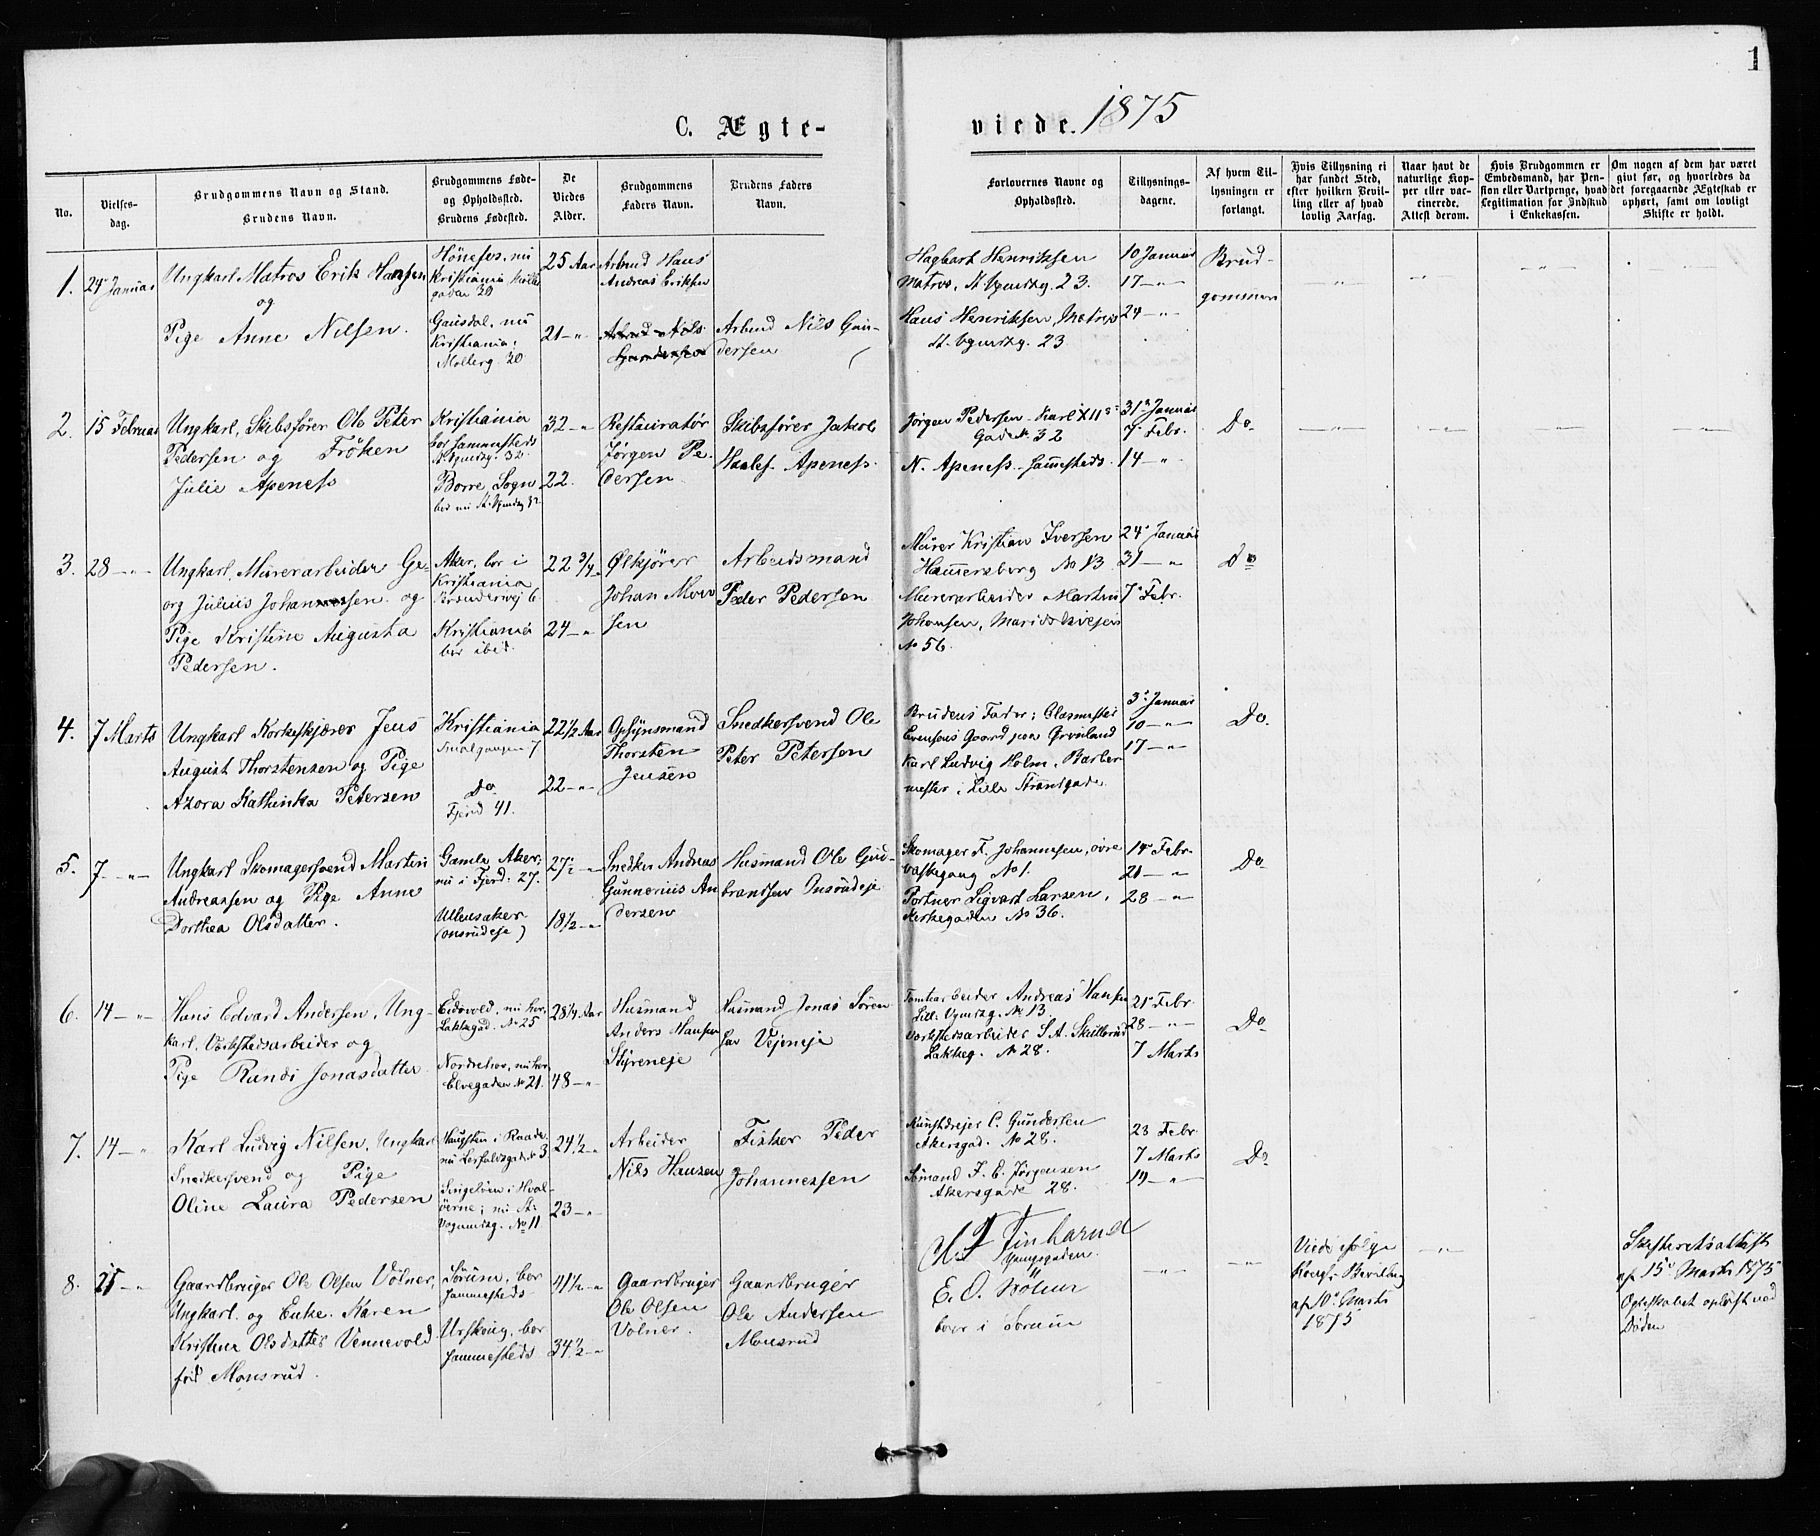 1
C. Ægte-
viede. 1875
No.
Vielses-
dag.
Brudgommens Navn og Stand.
Brudens Navn.
Brudgommens Føde-
og Opholdssted.
Brudens Fødested.
De
Viedes
Alder.
Brudgommens
Faders Navn.
Brudens Faders
Navn.
Forlovernes Navne og
Opholdssted.
Tillysnings-
dagene.
Af hvem Til-
lysningen er
forlangt.
Hvis Tillysning ei
har fundet Sted,
efter hvilken Bevil-
ling eller af hvad
lovlig Aarsag.
Naar havt de
naturlige Kop-
per eller vac-
cinerede.
Attest derom.
Hvis Brudgommen er
Embedsmand, har Pen-
sion eller Vartpenge, hvad
Legitimation for Indskud
i Enkekassen.
Om nogen af dem har været
givt før, og hvorledes da
det foregaaende Ægteskab er
ophørt, samt om lovligt
Skifte er holdt.
1.
24 Januar
Ungkarl Matros Erik Hansen
og
Pige Anne Nilsen.
Hönefos, nu
Kristiania
gaden 20
Gausdal, nu
Kristiania,
Mølleg 20
25 Aar
21 — "
Arbmd Hans
Andreas Eriksen
Arbmd Nils
Gundersen
Arbmd Nils Gun-
dersen
Hagbart Henriksen
Matros, St. Vgnsdsg. 23.
Hans Henriksen, Matros
St. Vgnsdsg. 23
10 Januar
17 — "
24 — "
Brud-
gommen
— " —
— " —
— " —
— " —
2.
15 Februar
Ungkarl, Skibsfører Ole Peter
Pedersen og Frøken
Julie Apeness
Kristiania
bor sammesteds
St. Vgnsdsg. 32
Borre Sogn
bor nu St. Vgnsdsg 32
32 — "
22.
Restauratør
Jørgen Pe-
dersen
Skibsfører Jakob
Apeness.
Jörgen Pedersen Karl XIIs
Gade № 32
N. Apeness sammesteds.
31 Januar
7 Febr.
14 — "
Do
— " —
— " —
— " —
— " —
3.
28 — "
Ungkarl, Murerarbeider Ge-
org Julius Johansen og
Pige Kristine Augusta
Pedersen.
Aker, bor i
Kristiania
6
Kristiania
bor ibid.
22 3/4
24 — "
Ølkjører
Johan
sen
Arbeidsmand
Peder Pedersen
Murer Kristian Iversen
Hammersborg No 13
Murerarbeider Martin
Johansen, Maridalsveien
№ 56.
24 Januar
31 — "
7 Febr.
Do
4.
7 Marts
Ungkarl Korkeskjærer Jens
August Thorstensen og Pige
Azora Kathinka Petersen
Kristiania
7
Do
Fjerd 41.
22 1/2 Aar
22 — "
Opsynsmand
Thorsten
Jensen
Snedkersvend Ole
Peter Petersen
Brudens Fader; Glasmester
Evensens Gaard paa Grønland
Karl Ludvig Holm, Barber-
mester i Lille Strandgade.
3 Januar
10 — "
17 — "
Do.
5.
7 — "
Ungkarl Skomagersvend Martin
Andreassen og Pige Anne
Dorthea Olsdatter.
Gamle Aker;
nu i Fjerd. 27.
Ullensaker
(Onsrudeje)
27 — "
18 1/2 — "
Snedker Andreas
Gunnerius An
dersen
Husmand Ole Gud
brandsen Onsrudeje
Skomager F. Johannesen, øvre
Vaskegang No 1.
Portner Sigvart Larsen,
Kirkegaden № 36.
14 Febr
21 — "
28 — "
Do
6.
14 — "
Hans Edvard Andersen, Ung-
karl, Værkstedsarbeider og
Pige Randi Jonasdatter
Eidsvold, nu bor
Lakkegd. № 25
Norderhov, nu bor
Elvegaden № 21.
28 1/4 Aar
48 — "
Husmand
Anders Hansen
Styreneje
Husmand Jonas Sören-
sen Vejeneje
Tomtearbeider Andreas Hansen
Lill. Vgnsdsg. № 13.
Værkstedsarbeider S. A. Skullerud
Lakkeg. № 28.
21 Febr
28 — "
7 Marts
Do
7.
14 — "
Karl Ludvig Nilsen, Ungkarl
Snedkersvend og Pige
Oline Laura Pedersen
Haugsten i Raade
nu № 3
Singeløen i Hval-
øerne; nu St.
Vognmdsg. № 11
24 1/2 — "
23 — "
Arbeider
Nils Hansen
Fisker Peder
Johannessen
Kunstdrejer C. Gundersen
Akersgad. № 28.
Sömand F. E. Jørgensen
Akersgade 28.
23 Febr
7 Marts
— "
Do
8.
21 — "
Gaardbruger Ole Olsen Völner,
Ungkarl og Enke Karen
Kristine Olsdatter Vennevold
föd Monsrud.
Sørum, bor
sammesteds
Urskoug, bor
sammesteds
41 1/2 — "
34 1/2 — "
Gaardbruger
Ole Olsen
Völner.
Gaardbruger
Ole Andersen
Monsrud
Youngsgaden.
E. O. Völner
boer i Sørum
— " —
— " —
Viede ifølge
Kongl. Bevilling
af 10 Marts
1875
— " —
Skifteretsattest
af 15 Marts 1875
Egteskabet opløst ved
Døden